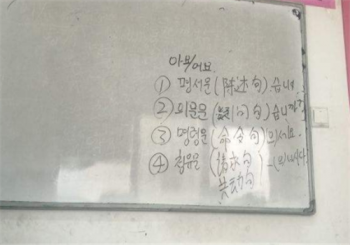 아/어요.
① 평서문 (陈述句) 습니다
② 의문문 (疑问句) 습니까?
③ 명령문 (命令句) (으)세요.
④ 청유문 (请求句 -(으)ㅂ시다
共动句